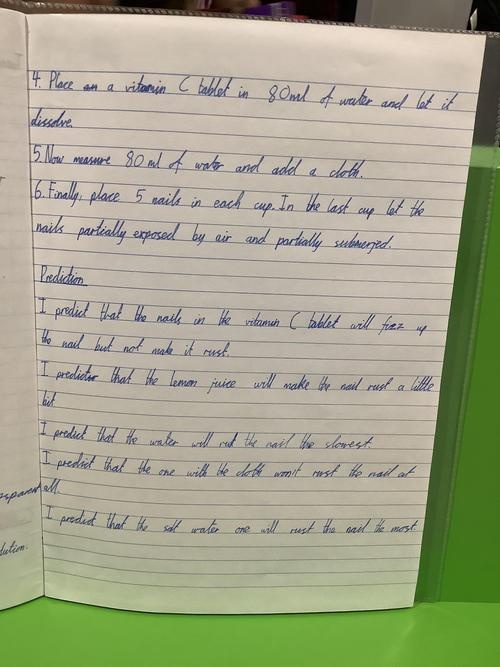 4. Place an a vitamin C tablet in 80ml of water and let it
dissolve.
5. Now measure 80 ml of water and add a cloth.
6. Finally, place 5 nails in each cup. In the last cup let the
nails partially exposed by air and partially submerjed.
Prediction
I predict that the nails in the vitamin C tablet will fizz up
the nail but not make it rust.
I predict that the lemon juice will make the nail rust a little
bit
I predict that the water will rust the nail the slowest.
I predict that the one with the cloth won't rust the nail at
all.
I predict that the salt water one will rust the nail the most.